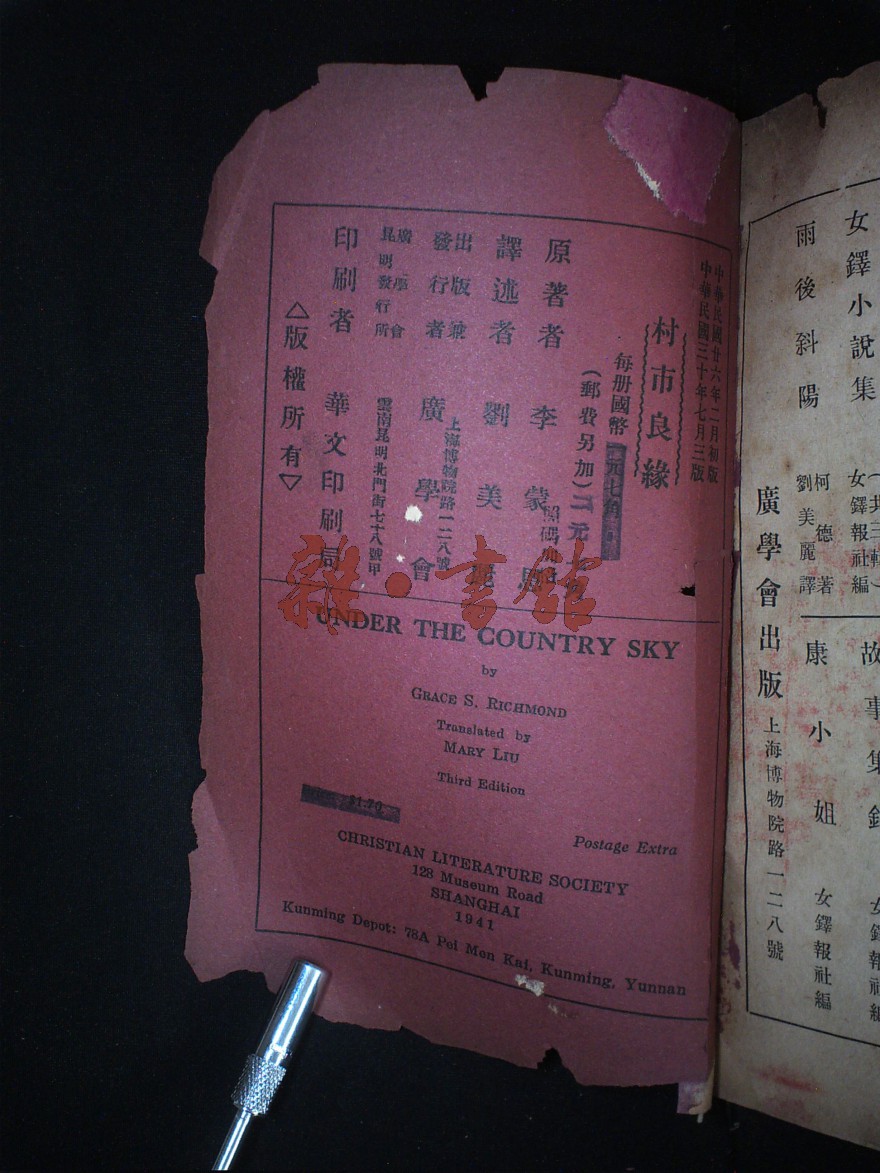 中華民國廿六年二月初版
中華民國三十年七月三版
村市良緣
每册國幣
元七角
(郵費另加)
原著者 李蒙
譯述者 劉美麗
出版兼
發行者 廣學會
上海博物院路一二八號
廣學會
昆明發行所 雲南昆明北門街七十八號甲
印刷者 華文印刷局
△版權所有▽
UNDER THE COUNTRY SKY
by
GRACE S. RICHMOND
Translated by
MARY LIU
Third Edition
$1.70
Postage Extra
CHRISTIAN LITERATURE SOCIETY
128 Museum Road
SHANGHAI
1941
Kunming Depot: 78A Pei Men Kai, Kunming, Yunnan
女鐸小說集 (共三輯) 女鐸報社編
雨後斜陽 柯德著 劉美麗譯
故事集錦 女鐸報社編
康小姐 女鐸報社編
廣學會出版 上海博物院路一二八號
雜·書館